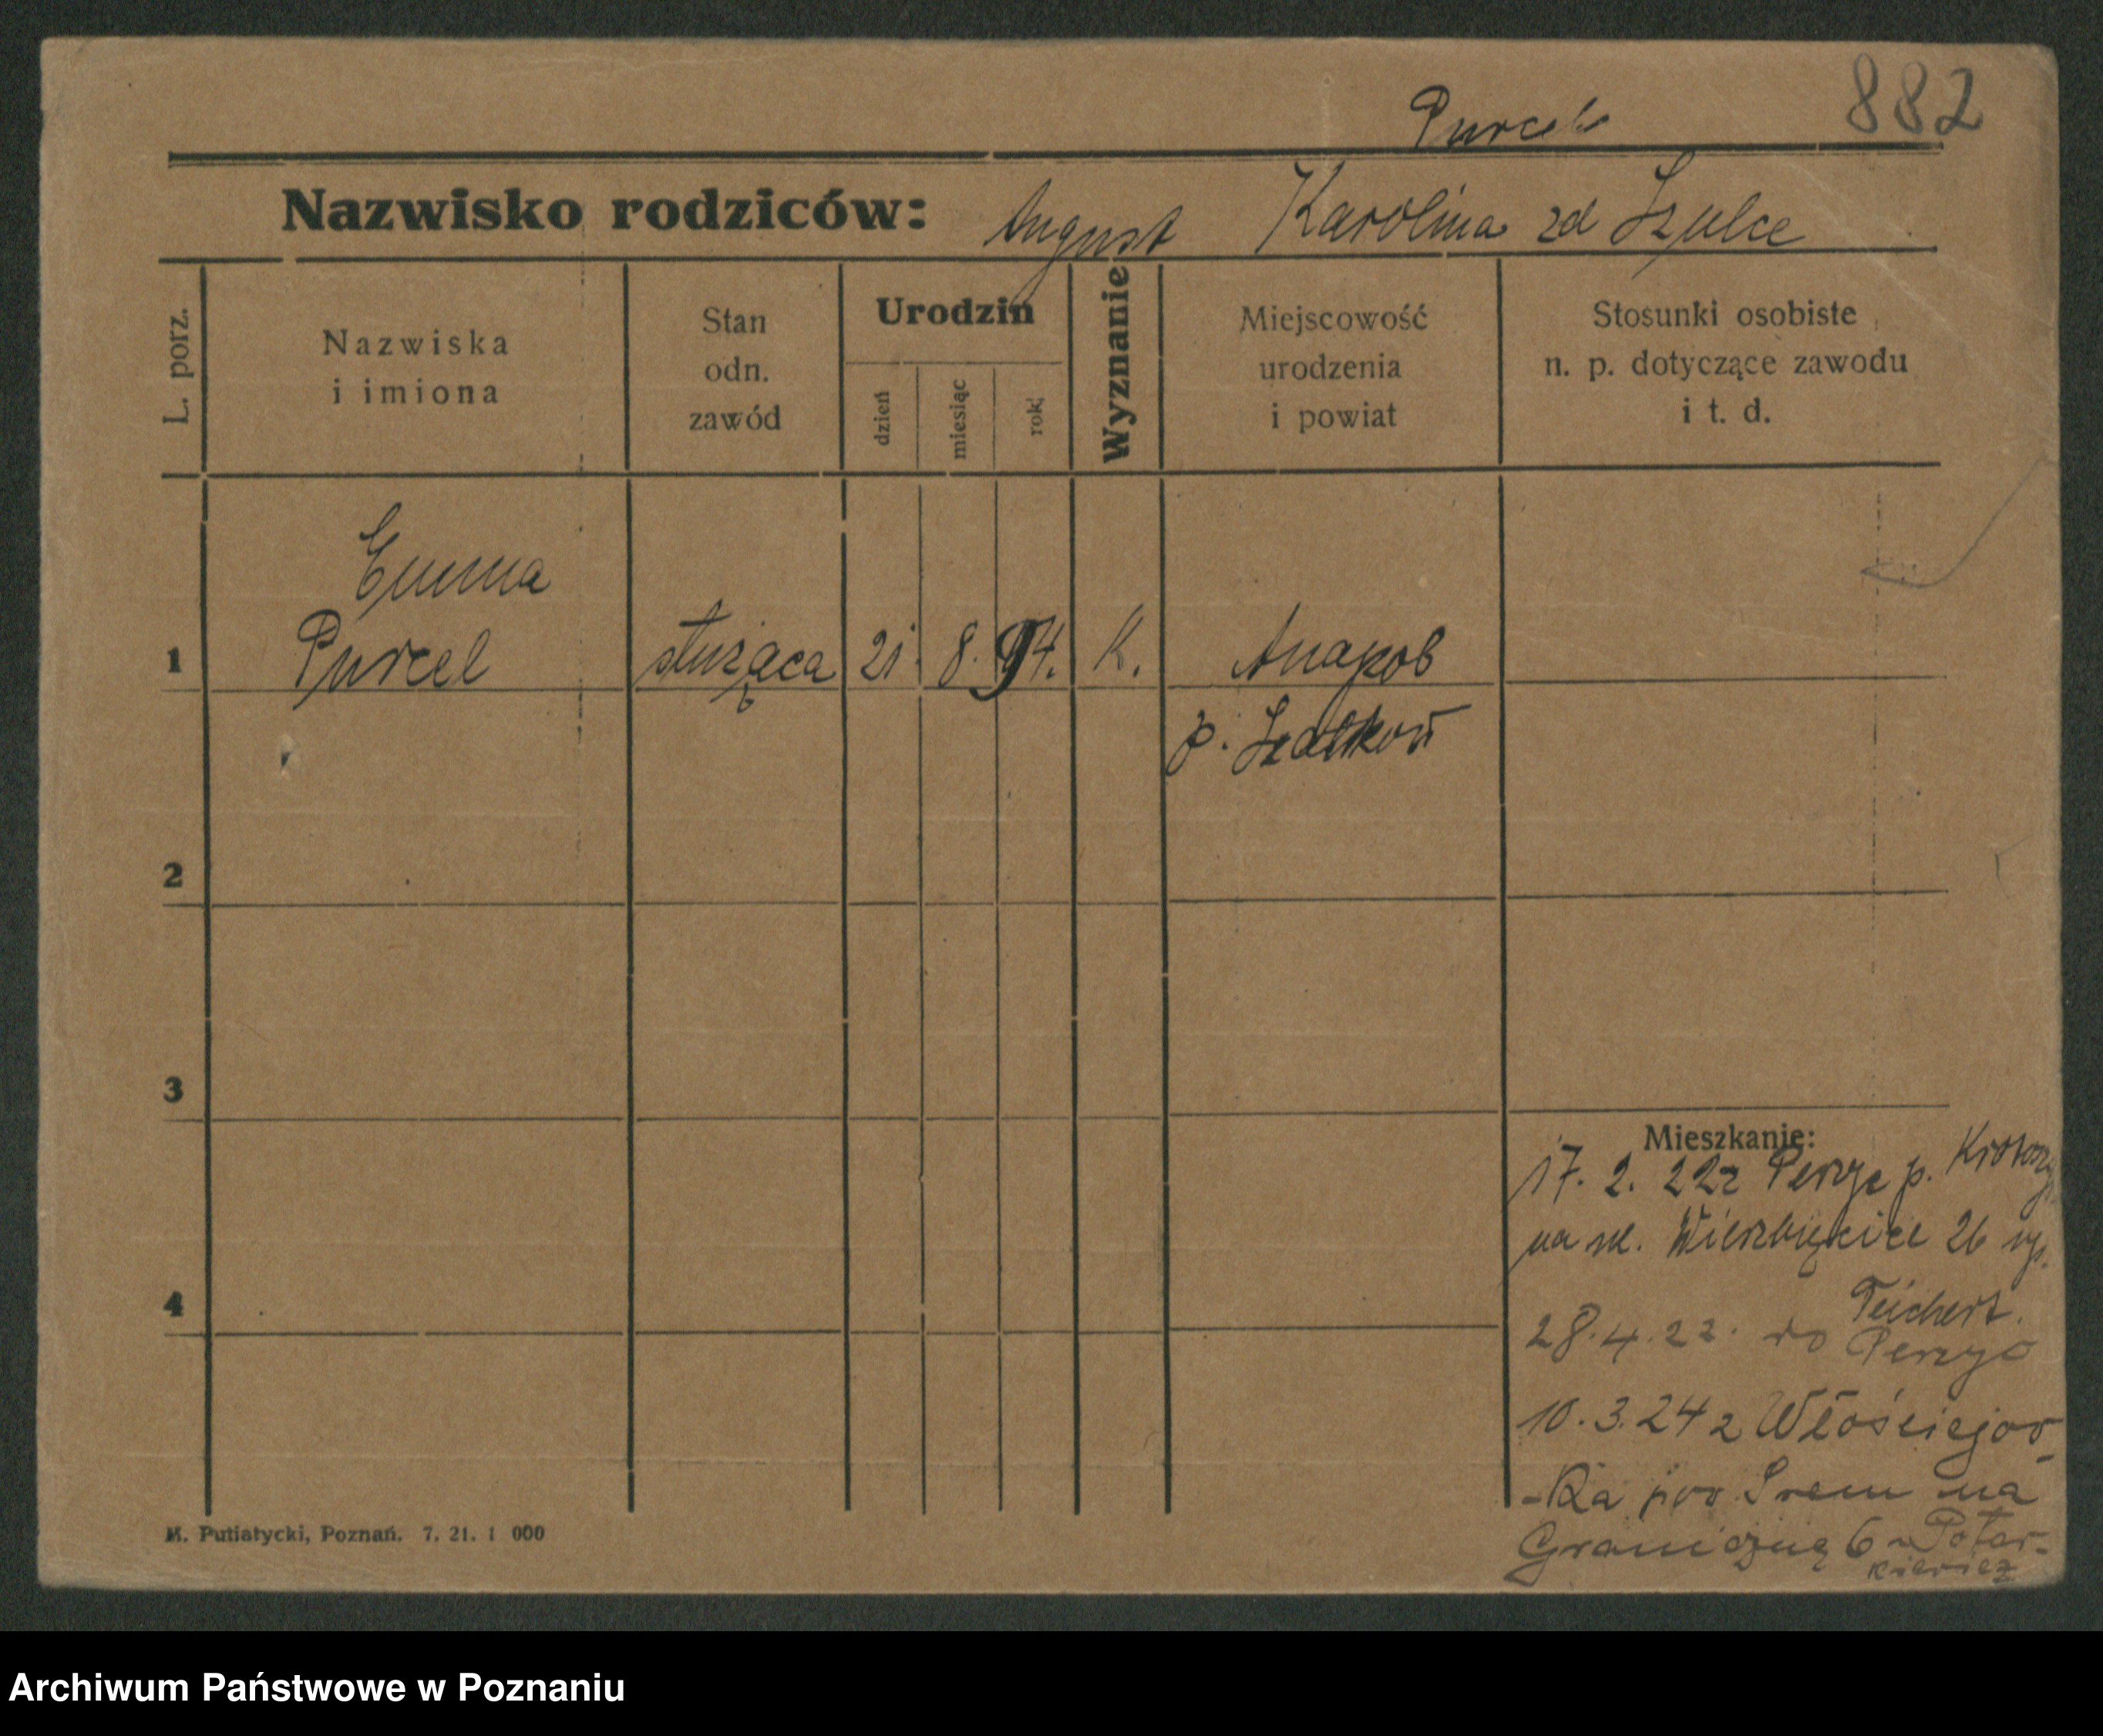 882
Purcel
Nazwisko rodziców: August Karolina zd Szulce
L. porz.
Nazwiska
i imiona
Stan
odn.
zawód
Urodzin
dzień
miesiąc
rok
Wyznanie
Miejscowość
urodzenia
i powiat
Stosunki osobiste
n. p. dotyczące zawodu
i t. d.
Emma
1 Purcel służąca 21. 8. 94. K. Anapob
p.
2
3
4
Mieszkanie:
17. 2. 22 z Perzyc p. Krotoszyn
na Wierzbięcice 26
Teichert.
28.4.22. do Perzyc
10.3.24 z Włościejow
-Ka pow. Śrem na
Graniczną 6
M. Putiatycki, Poznań. 7. 21. 1 000
Archiwum Państwowe w Poznaniu